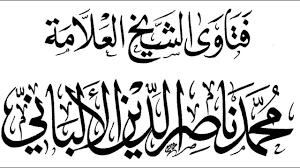 فَتَاوَى الشَّيْخِ العَلَّامَة
مُحَمَّد نَاصِر الدِّين الأَلْبَانِي